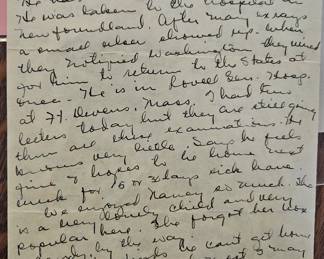 He was taken to the hospital in
Newfoundland. After many xrays
a small ulcer showed up. When
they notified Washington they wired
for him to return to the States at
once. He is in Lovell Gen. Hosp.
at Ft. Devens, Mass. I had two
letters today but they are still giving
him all those examinations. He
knows very little. Says he feels
fine & hopes to be home next
week for 15 or 30 days sick leave.
We enjoyed Nancy so much. She
is a very lovely child and very
popular here. She forgot her box
by the way
cant get home